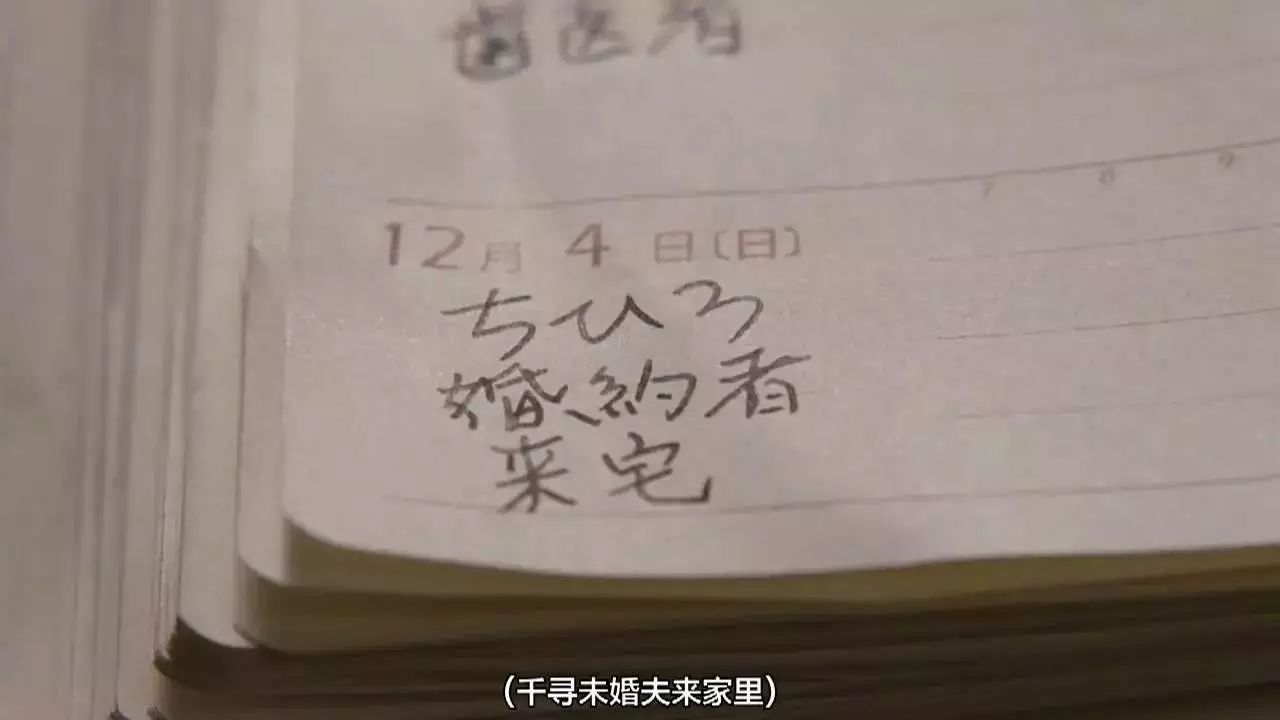 7 8 9
12月 4 日(日)
ちひろ
婚約者
来宅
(千寻未婚夫来家里)